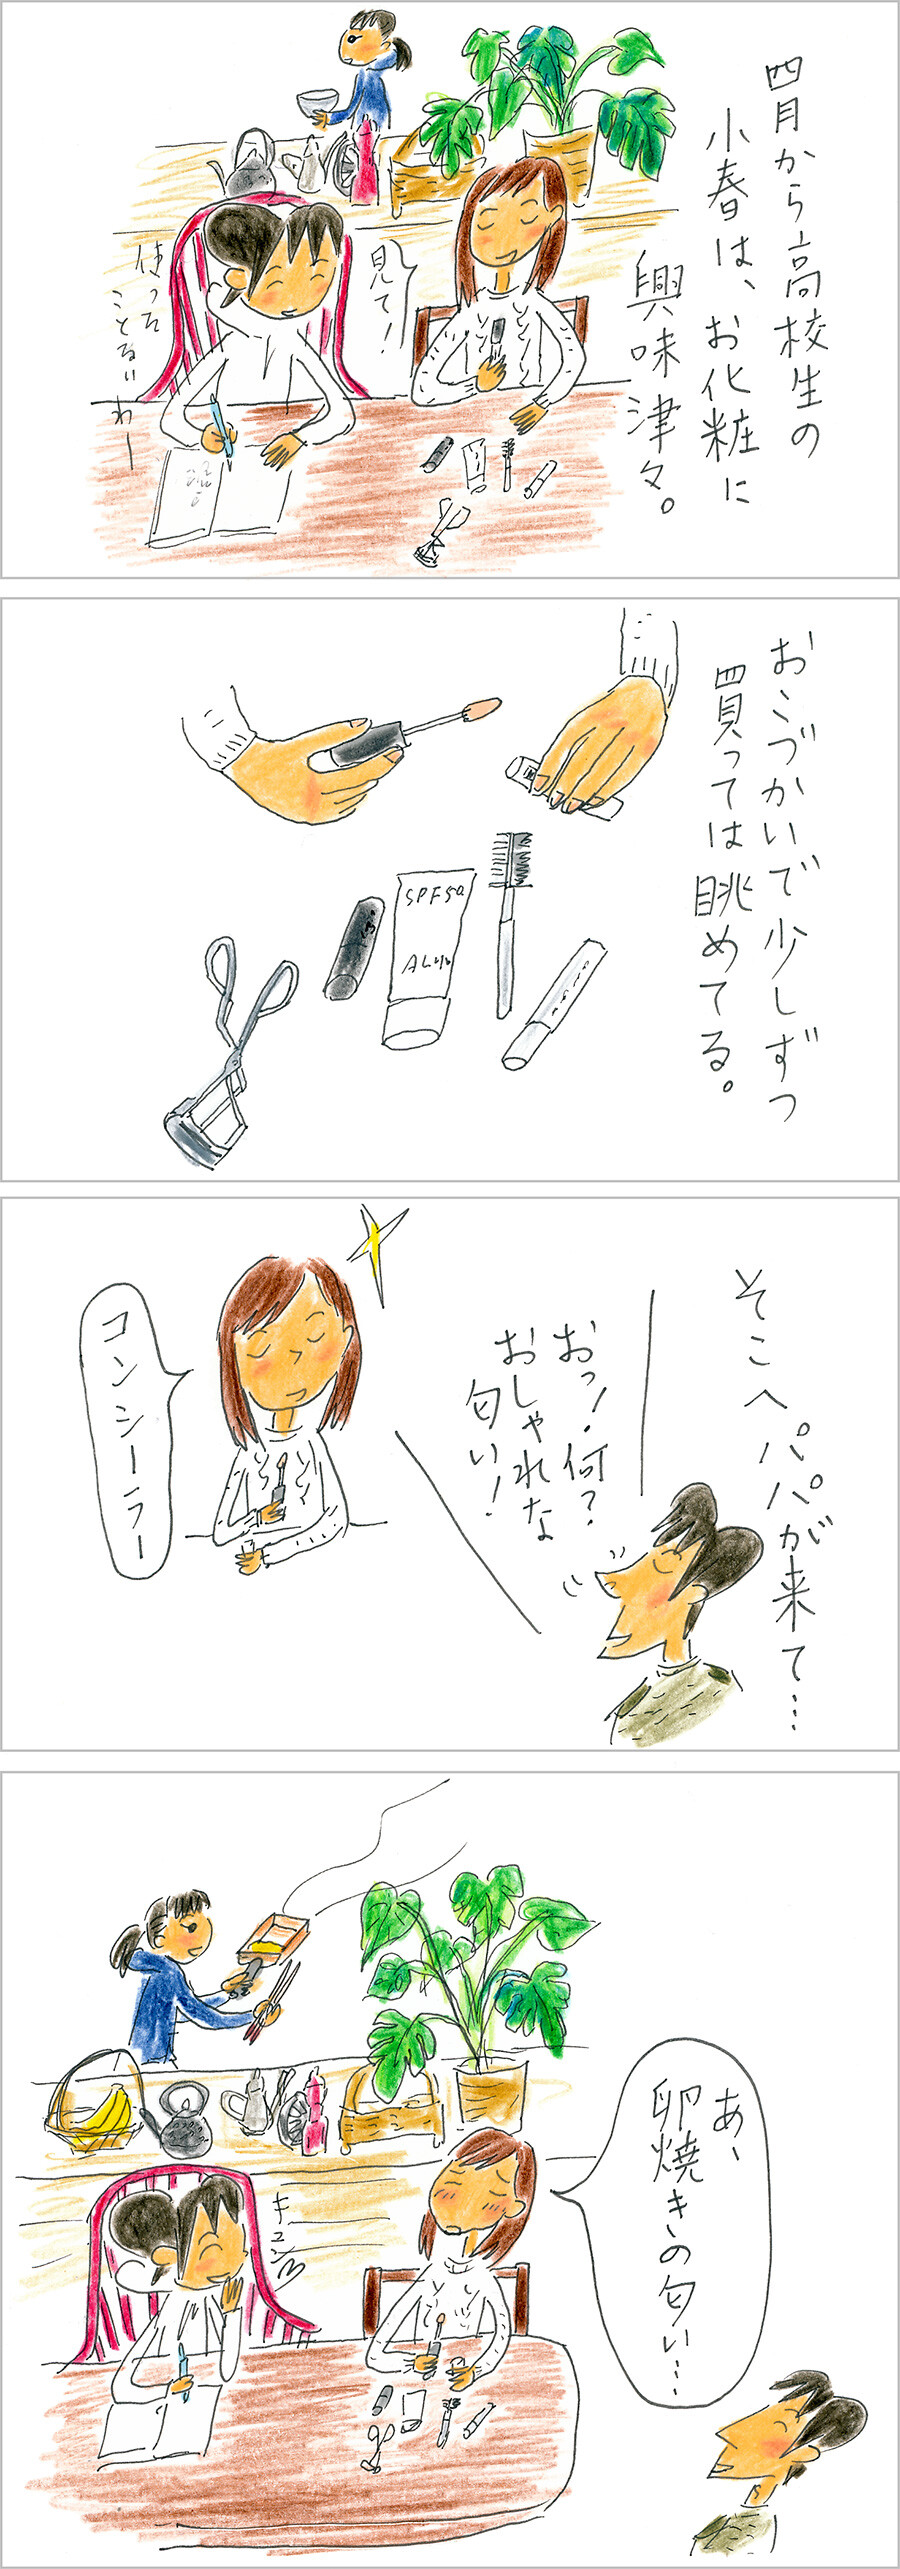 四月から高校生の
小春は、お化粧に
興味津々。
見て!
使った
ことないわー
おこづかいで少しずつ
買っては眺めてる。
SPF50
そこへパパが来て…
おっ!何?
おしゃれな
匂い!
コンシーラー
あ、
卵焼きの匂い…
キュン